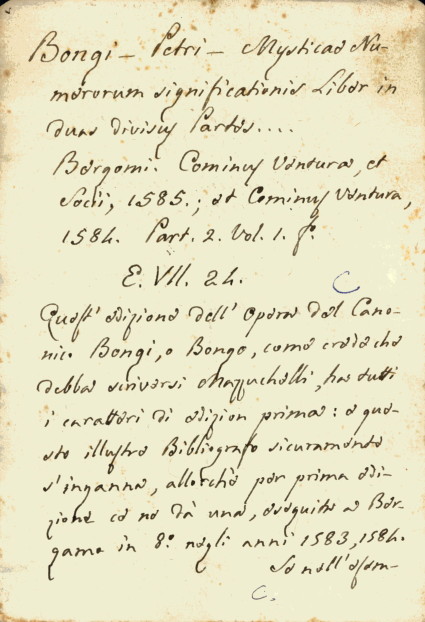 Bongi - Petri - Mysticae Nu-
merorum significationis Liber in
duas divisus Partes....
Bergomi. Cominus Ventura, et
Socii, 1585.; et Cominus Ventura,
1584. Part. 2. Vol. 1. fo.
E. VII. 24.
C
Quest' edizione dell' Opera del Cano-
nico Bongi, o Bongo, come crede che
debba scriversi Mazzuchelli, ha tutti
i caratteri di edizion prima: e que-
sto illustre Bibliografo sicuramente
s'inganna, allorchè per prima edi-
zione ce ne dà una, eseguita a Ber-
gamo in 8o. negli anni 1583, 1584.
Se nell' esem-
C.